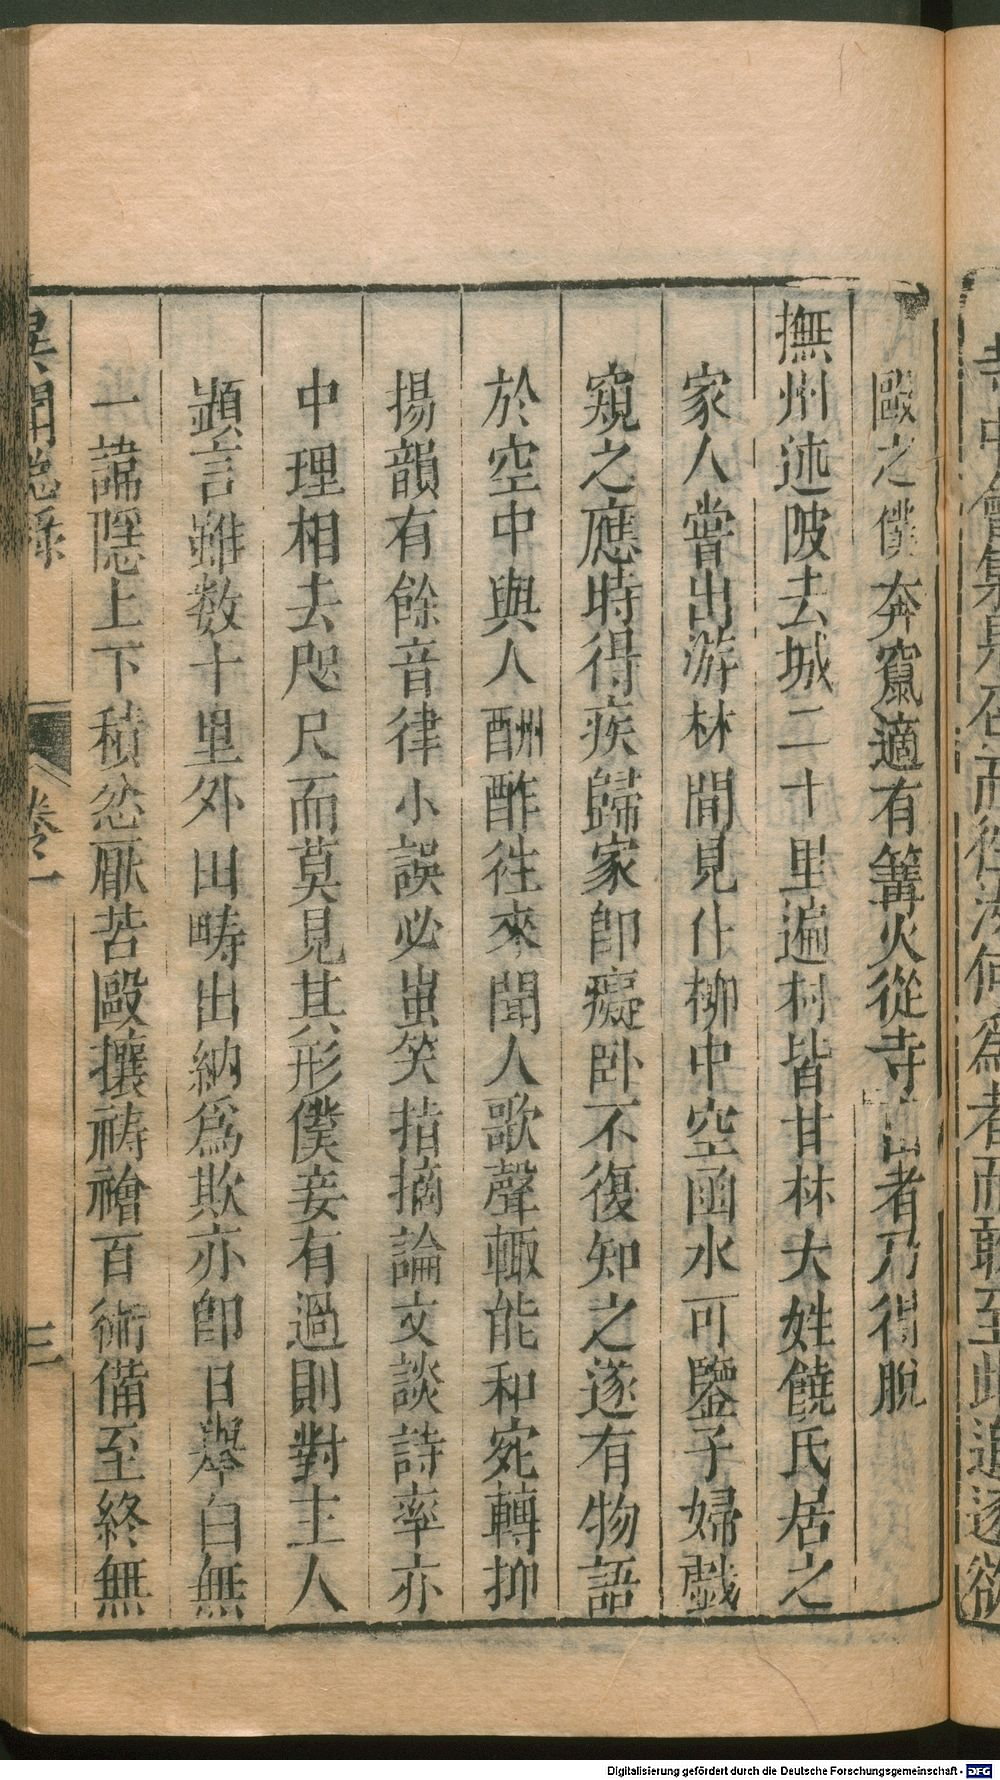 寺中會集具石而往汝何爲者而敢至此追逐欲
毆之僕奔竄適有篝火從寺者乃得脫
撫州述陂去城二十里遍村皆甘林大姓饒氏居之
家人嘗出游林間見仆柳中空函水可鑒子婦戲
窺之應時得疾歸家卽癡臥不復知之遂有物語
於空中與人酬酢徃來聞人歌聲輙能和宛轉抑
揚韻有餘音律小誤必蚩笑指摘論文談詩率亦
中理相去咫尺而莫見其形僕妾有過則對主人
顯言雖数十里外田疇出納爲欺亦卽日舉白無
一諱隱上下積忿厭苦毆攘禱禬百術備至終無
異聞緫錄
卷一
三
Digitalisierung gefördert durch die Deutsche Forschungsgemeinschaft - DFG